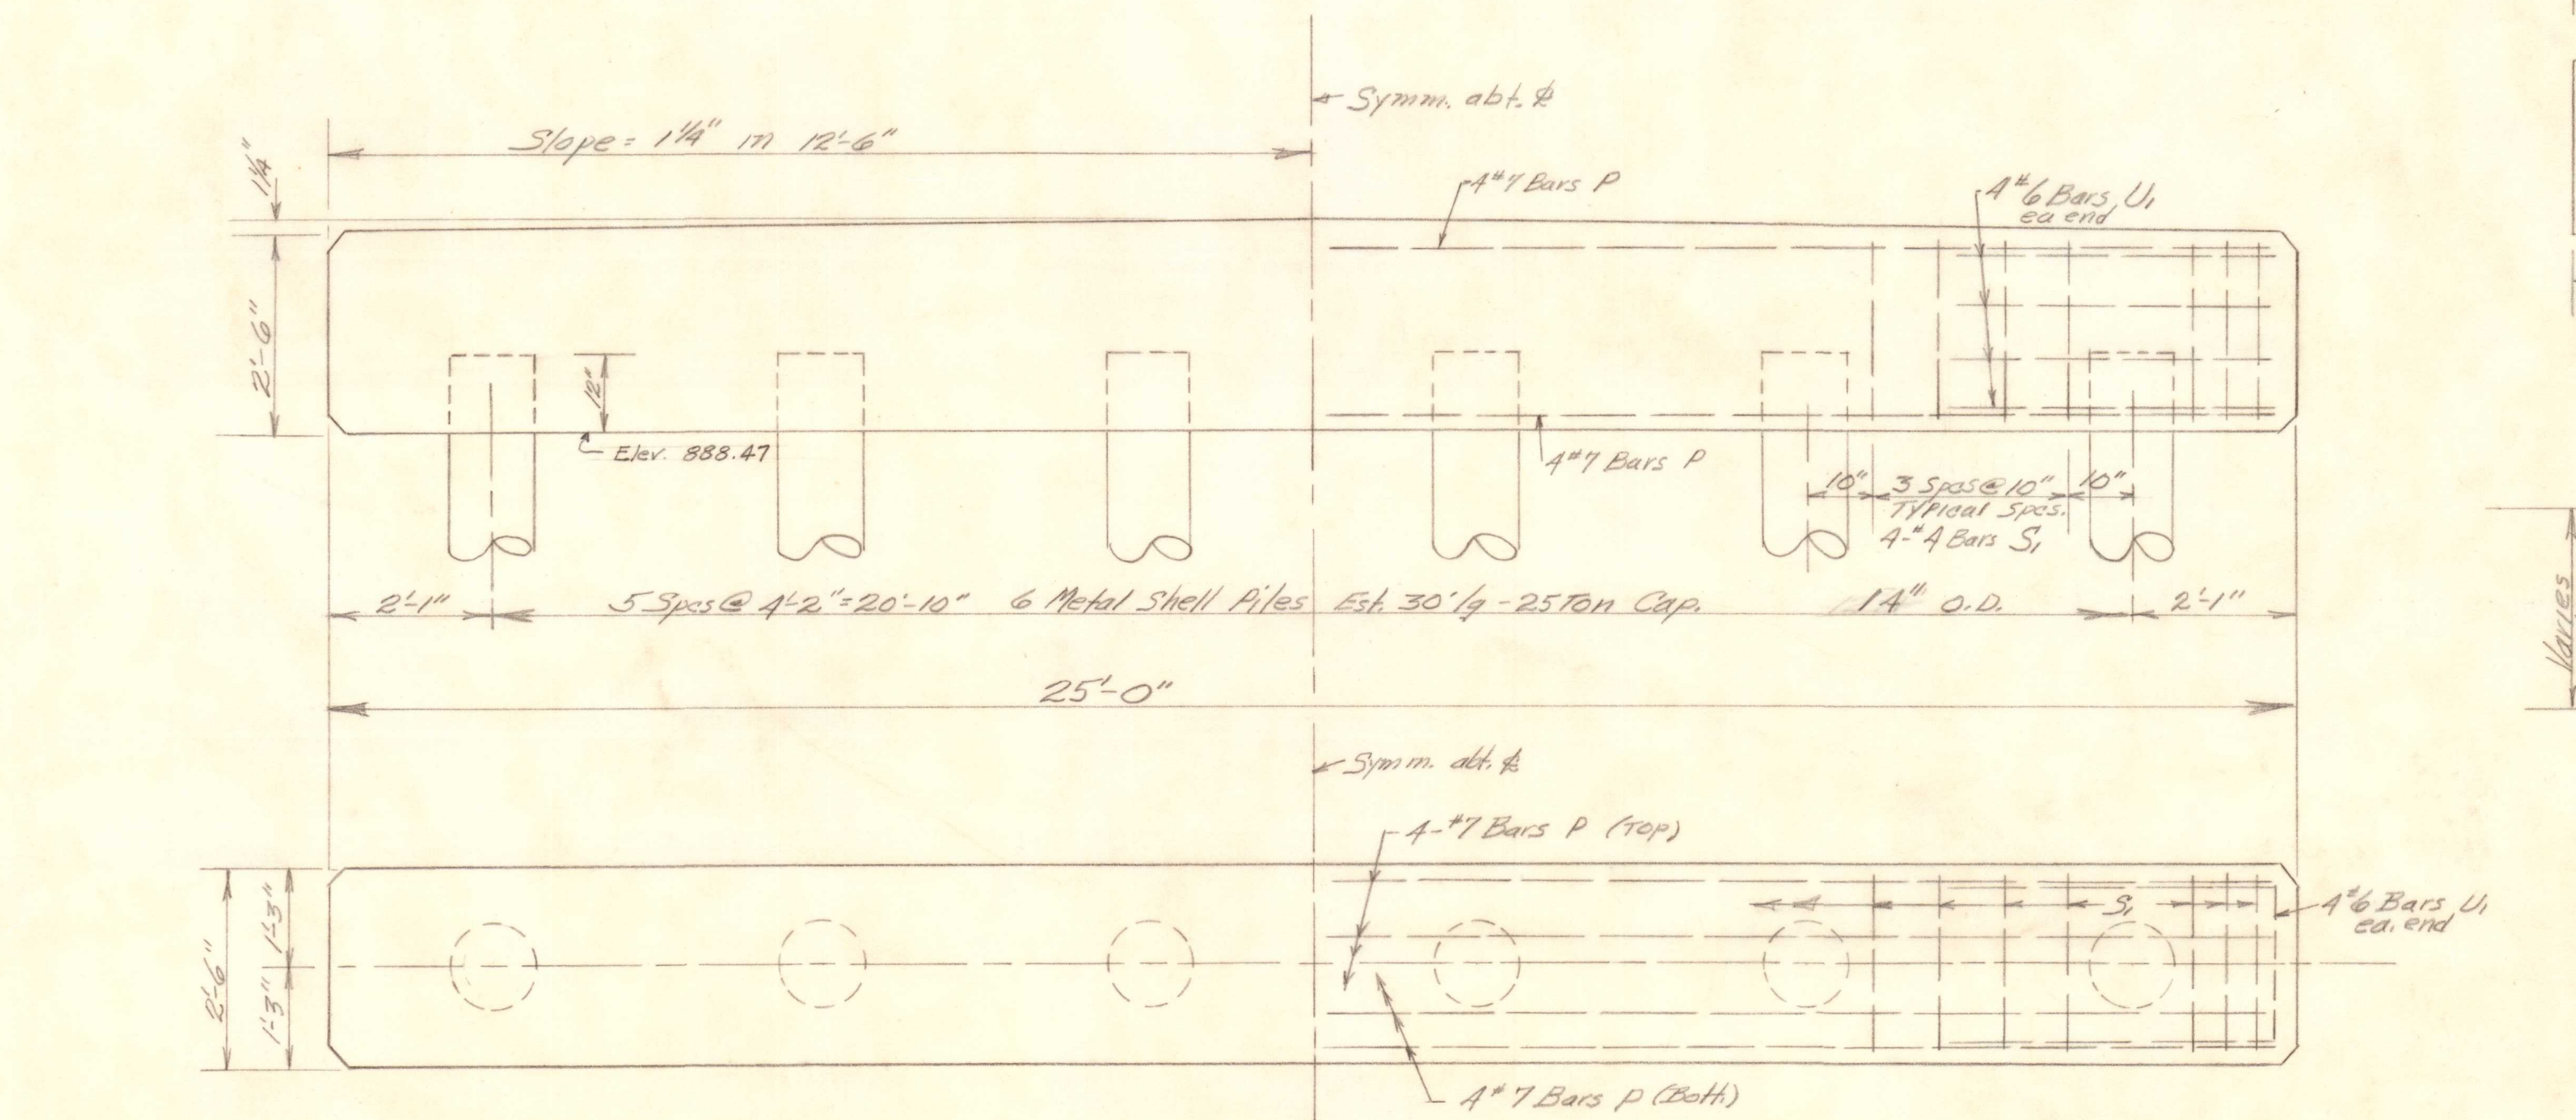 Symm. abt. ℄
Slope = 1 1/4" in 12'-6"
1 1/4"
4#7 Bars P
4#6 Bars U1
ea end
2'-6"
12"
Elev. 888.47
4#7 Bars P
10" 3 Spcs@10" 10"
Typical Spcs.
4-#4 Bars S1
2'-1" 5 Spcs@ 4'-2"=20'-10" 6 Metal Shell Piles Est. 30' lg - 25 Ton Cap. 14" O.D. 2'-1"
25'-0"
Varies
Symm. abt. ℄
4-#7 Bars P (Top)
2'-6"
1'-3"
1'-3"
S1
4#6 Bars U1
ea. end
4#7 Bars P (Bott.)